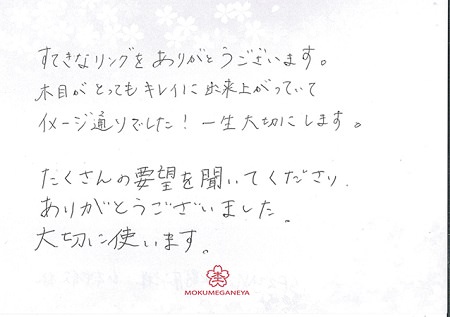 すてきなリングをありがとうございます。
木目がとってもキレイに出来上がっていて
イメージ通りでした！一生大切にします。
たくさんの要望を聞いてくださり、
ありがとうございました。
大切に使います。
MOKUMEGANEYA